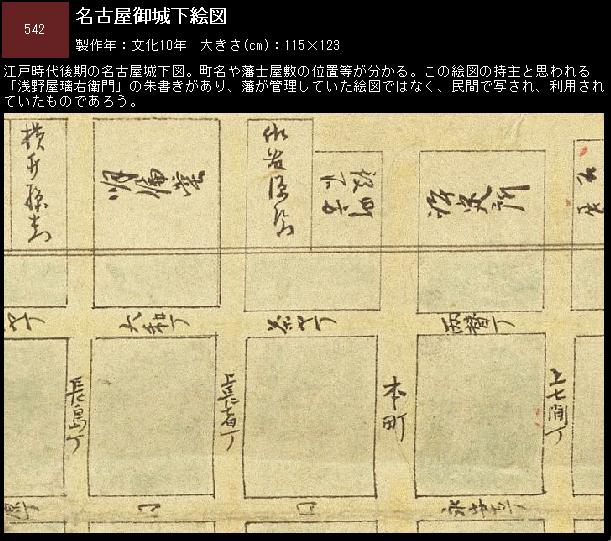 542
名古屋御城下絵図
製作年：文化10年　大きさ(cm)：115×123
江戸時代後期の名古屋城下図。町名や藩士屋敷の位置等が分かる。この絵図の持主と思われる
「浅野屋璃右衛門」の朱書きがあり、藩が管理していた絵図ではなく、民間で写され、利用され
ていたものであろう。
明倫堂
評定所
大和丁
茶や丁
両替丁
長嶋丁
上長者丁
本町
上七間丁